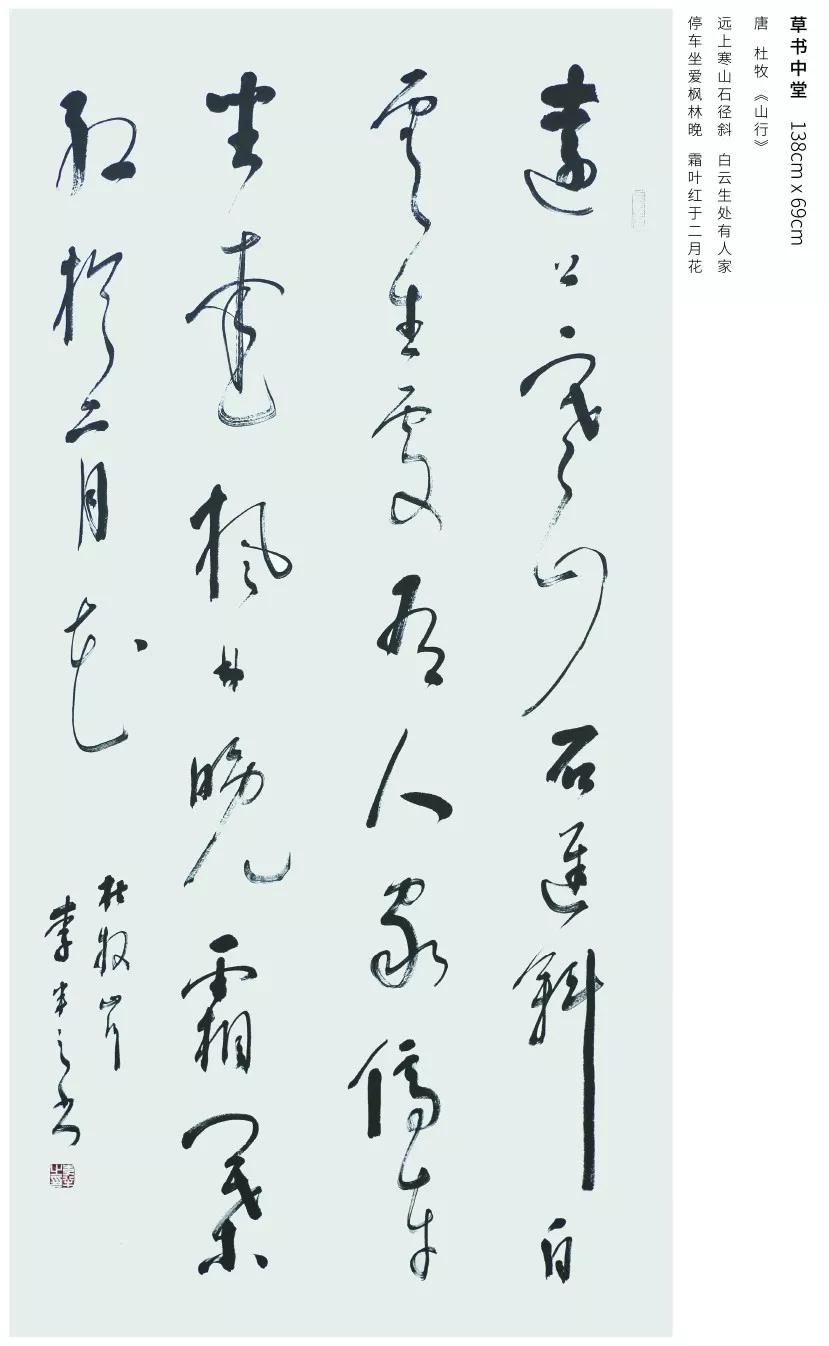 草书中堂 138cm x 69cm
唐 杜牧 《山行》
远上寒山石径斜 白云生处有人家
停车坐爱枫林晚 霜叶红于二月花
遠上寒山石逕斜白
雲生處有人家停車
坐愛楓林晚霜葉
紅於二月花
杜牧山行
李之书